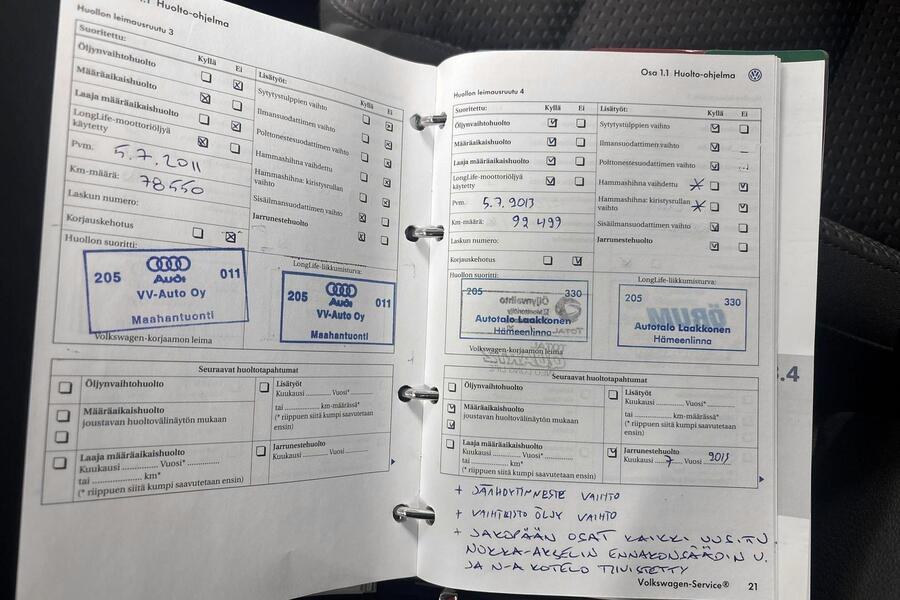 1.1 Huolto-ohjelma
Huollon leimausruutu 3
Suoritettu:
Kyllä Ei
Öljynvaihtohuolto
Määräaikaishuolto
Laaja määräaikaishuolto
LongLife-moottoriöljyä
käytetty
Pvm. 5.7.2011
Km-määrä: 78550
Laskun numero:
Korjauskehotus
Huollon suoritti:
Lisätyöt:
Kyllä Ei
Sytytystulppien vaihto
Ilmansuodattimen vaihto
Polttonestesuodattimen vaihto
Hammashihna vaihdettu
Hammashihna: kiristysrullan
vaihto
Sisäilmansuodattimen vaihto
Jarrunestehuolto
LongLife-liikkumisturva:
205 Audi 011
VV-Auto Oy
Maahantuonti
205 Audi 011
VV-Auto Oy
Maahantuonti
Volkswagen-korjaamon leima
Seuraavat huoltotapahtumat
Öljynvaihtohuolto
Määräaikaishuolto
joustavan huoltovälinäytön mukaan
Laaja määräaikaishuolto
Kuukausi Vuosi*
tai km*
(* riippuen siitä kumpi saavutetaan ensin)
Lisätyöt
Kuukausi Vuosi*
tai km-määrässä*
(* riippuen siitä kumpi saavutetaan
ensin)
Jarrunestehuolto
Kuukausi Vuosi
Osa 1.1 Huolto-ohjelma
Huollon leimausruutu 4
Suoritettu: Kyllä Ei
Öljynvaihtohuolto
Määräaikaishuolto
Laaja määräaikaishuolto
LongLife-moottoriöljyä
käytetty
Pvm. 5.7.2013
Km-määrä: 92 499
Laskun numero:
Korjauskehotus
Huollon suoritti:
Lisätyöt: Kyllä Ei
Sytytystulppien vaihto
Ilmansuodattimen vaihto
Polttonestesuodattimen vaihto
Hammashihna vaihdettu
Hammashihna: kiristysrullan
vaihto
Sisäilmansuodattimen vaihto
Jarrunestehuolto
LongLife-liikkumisturva:
205 330
Autotalo Laakkonen
Hämeenlinna
205 330
Autotalo Laakkonen
Hämeenlinna
Volkswagen-korjaamon leima
Seuraavat huoltotapahtumat
Öljynvaihtohuolto
Määräaikaishuolto
joustavan huoltovälinäytön mukaan
Laaja määräaikaishuolto
Kuukausi Vuosi*
tai km*
(* riippuen siitä kumpi saavutetaan ensin)
Lisätyöt
Kuukausi Vuosi*
tai km-määrässä*
(* riippuen siitä kumpi saavutetaan
ensin)
Jarrunestehuolto
Kuukausi 7 Vuosi 2015
+ JÄÄHDYTINNESTE VAIHTO
+ VAIHTEISTO ÖLJY VAIHTO
+ JAKOPÄÄN OSAT KAIKKI UUSITU
NOKKA-AKSELIN ENNAKONSÄÄDIN U.
JA N-A KOTELO TIIVISTETTY
Volkswagen-Service® 21
.4